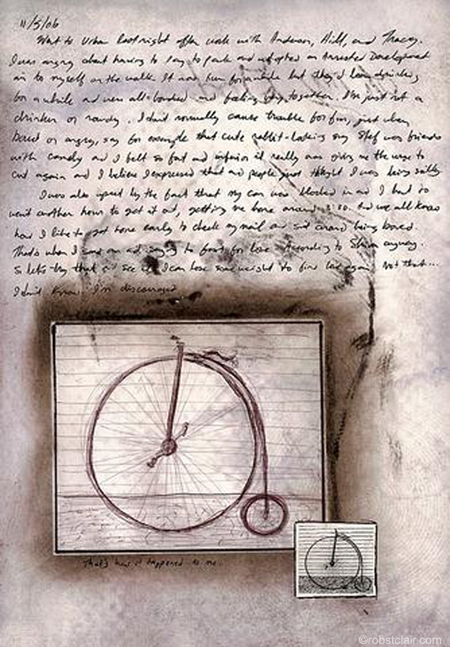 11/5/06
Went to Urban last night after work with Anderson, Hill, and Tracey.
I was angry about having to pay to park and adopted an Arrested Development
air to myself on the walk. It was fun for awhile but they'd been drinking
for a while and were all bonded and feeling together. I'm just not a
drinker or rowdy. I don't normally cause trouble for fun, just when
bored or angry, say for example that cute rabbit-looking guy Stef was friends
with comedy and I felt so fat and inferior it really was give me the urge to
cut again and I believe I expressed that and people just thought I was being silly
I was also upset by the fact that my car was blocked in and I had to
wait another hour to get it out, getting me home around 3:30. And we all know
how I like to get home early to check my mail and sit around being bored.
That's when I and trying to for love. According to anyway.
So let's try that and see if I can lose some weight to find love again. Not that...
I don't know. I'm discouraged
That's how it happened to me
©robstclair.com